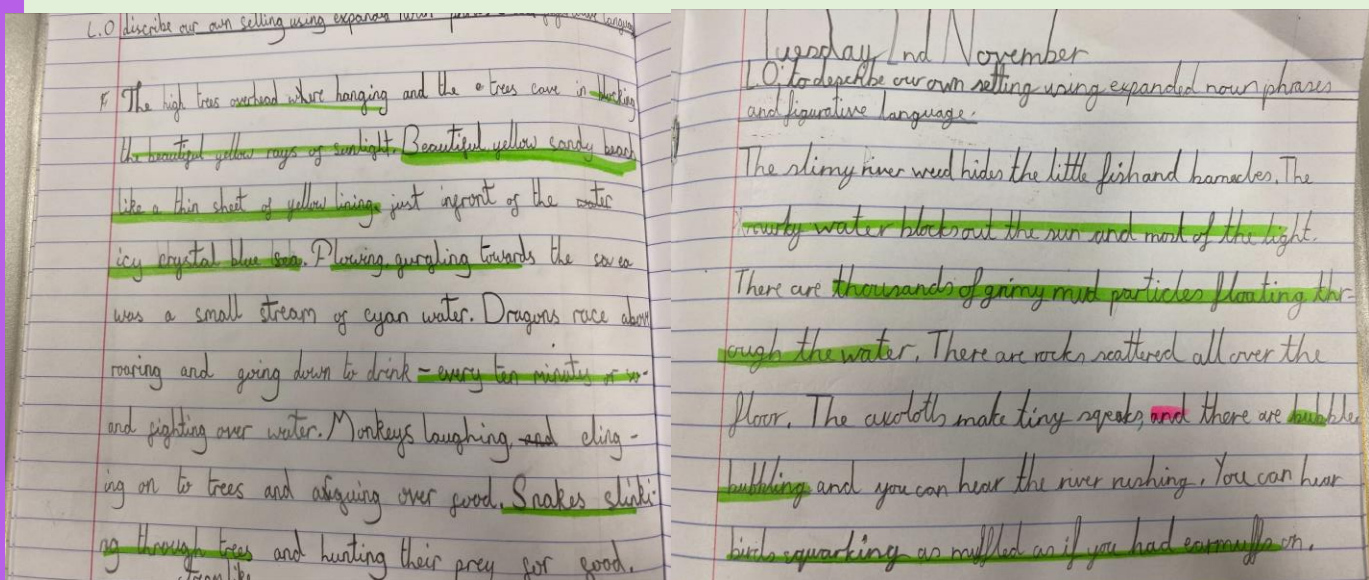 L.O describe our own setting using expanded noun phrases and figurative language
The high trees overhead where hanging and the trees cave in blocking
the beautiful yellow rays of sunlight. Beautiful yellow sandy beach
like a thin sheet of yellow lining, just infront of the water
icy crystal blue sea. Flowing, gurgling towards the
was a small stream of cyan water. Dragons race above
roaring and going down to drink - every ten minuits or so -
and fighting over water. Monkeys laughing, and cling -
ing on to trees and arguing over food. Snakes slinki
ng through trees and hunting their prey for food.
Tuesday 2nd November
L.O: to describe our own setting using expanded noun phrases
and figurative language.
The slimy river weed hides the little fish and barnecles. The
murky water blocks out the sun and most of the light.
There are thousands of grimy mud particles floating thr-
ough the water. There are rocks scattered all over the
floor. The axolotls make tiny sqeaks, and there are bubble
bubbling and you can hear the river rushing. You can hear
birds squarking as muffled as if you had earmuffs on.